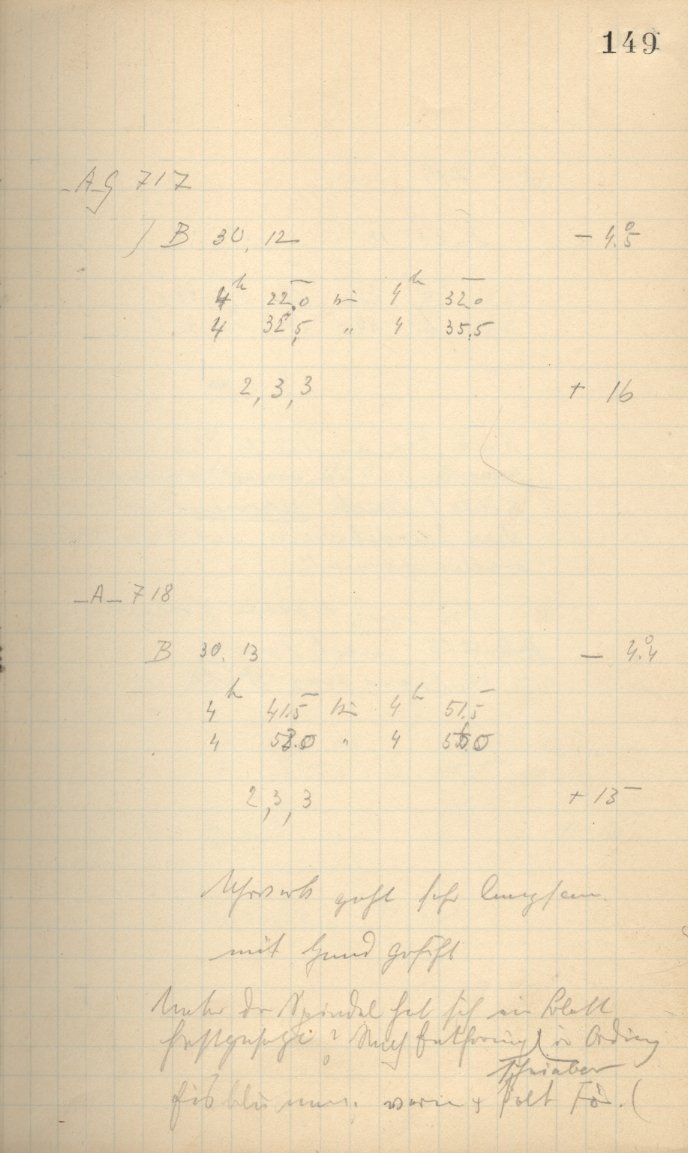 149
A G 717
B 30, 12 - 4.°5
4h 22,0 bis 4h 32,0
4 32,5 " 4 35,5
2, 3, 3 + 16
A 718
B 30. 13 - 4.°4
4h 41.5 bis 4h 51.5
4 " 4
2, 3, 3 + 15
Uhrwerk geht sehr langsam.
mit Hand geführt
Unter der Spindel hat sich ein Blatt
festgesetzt? Nach Entfernung in Ordnung
Schieber
Eisblumen.